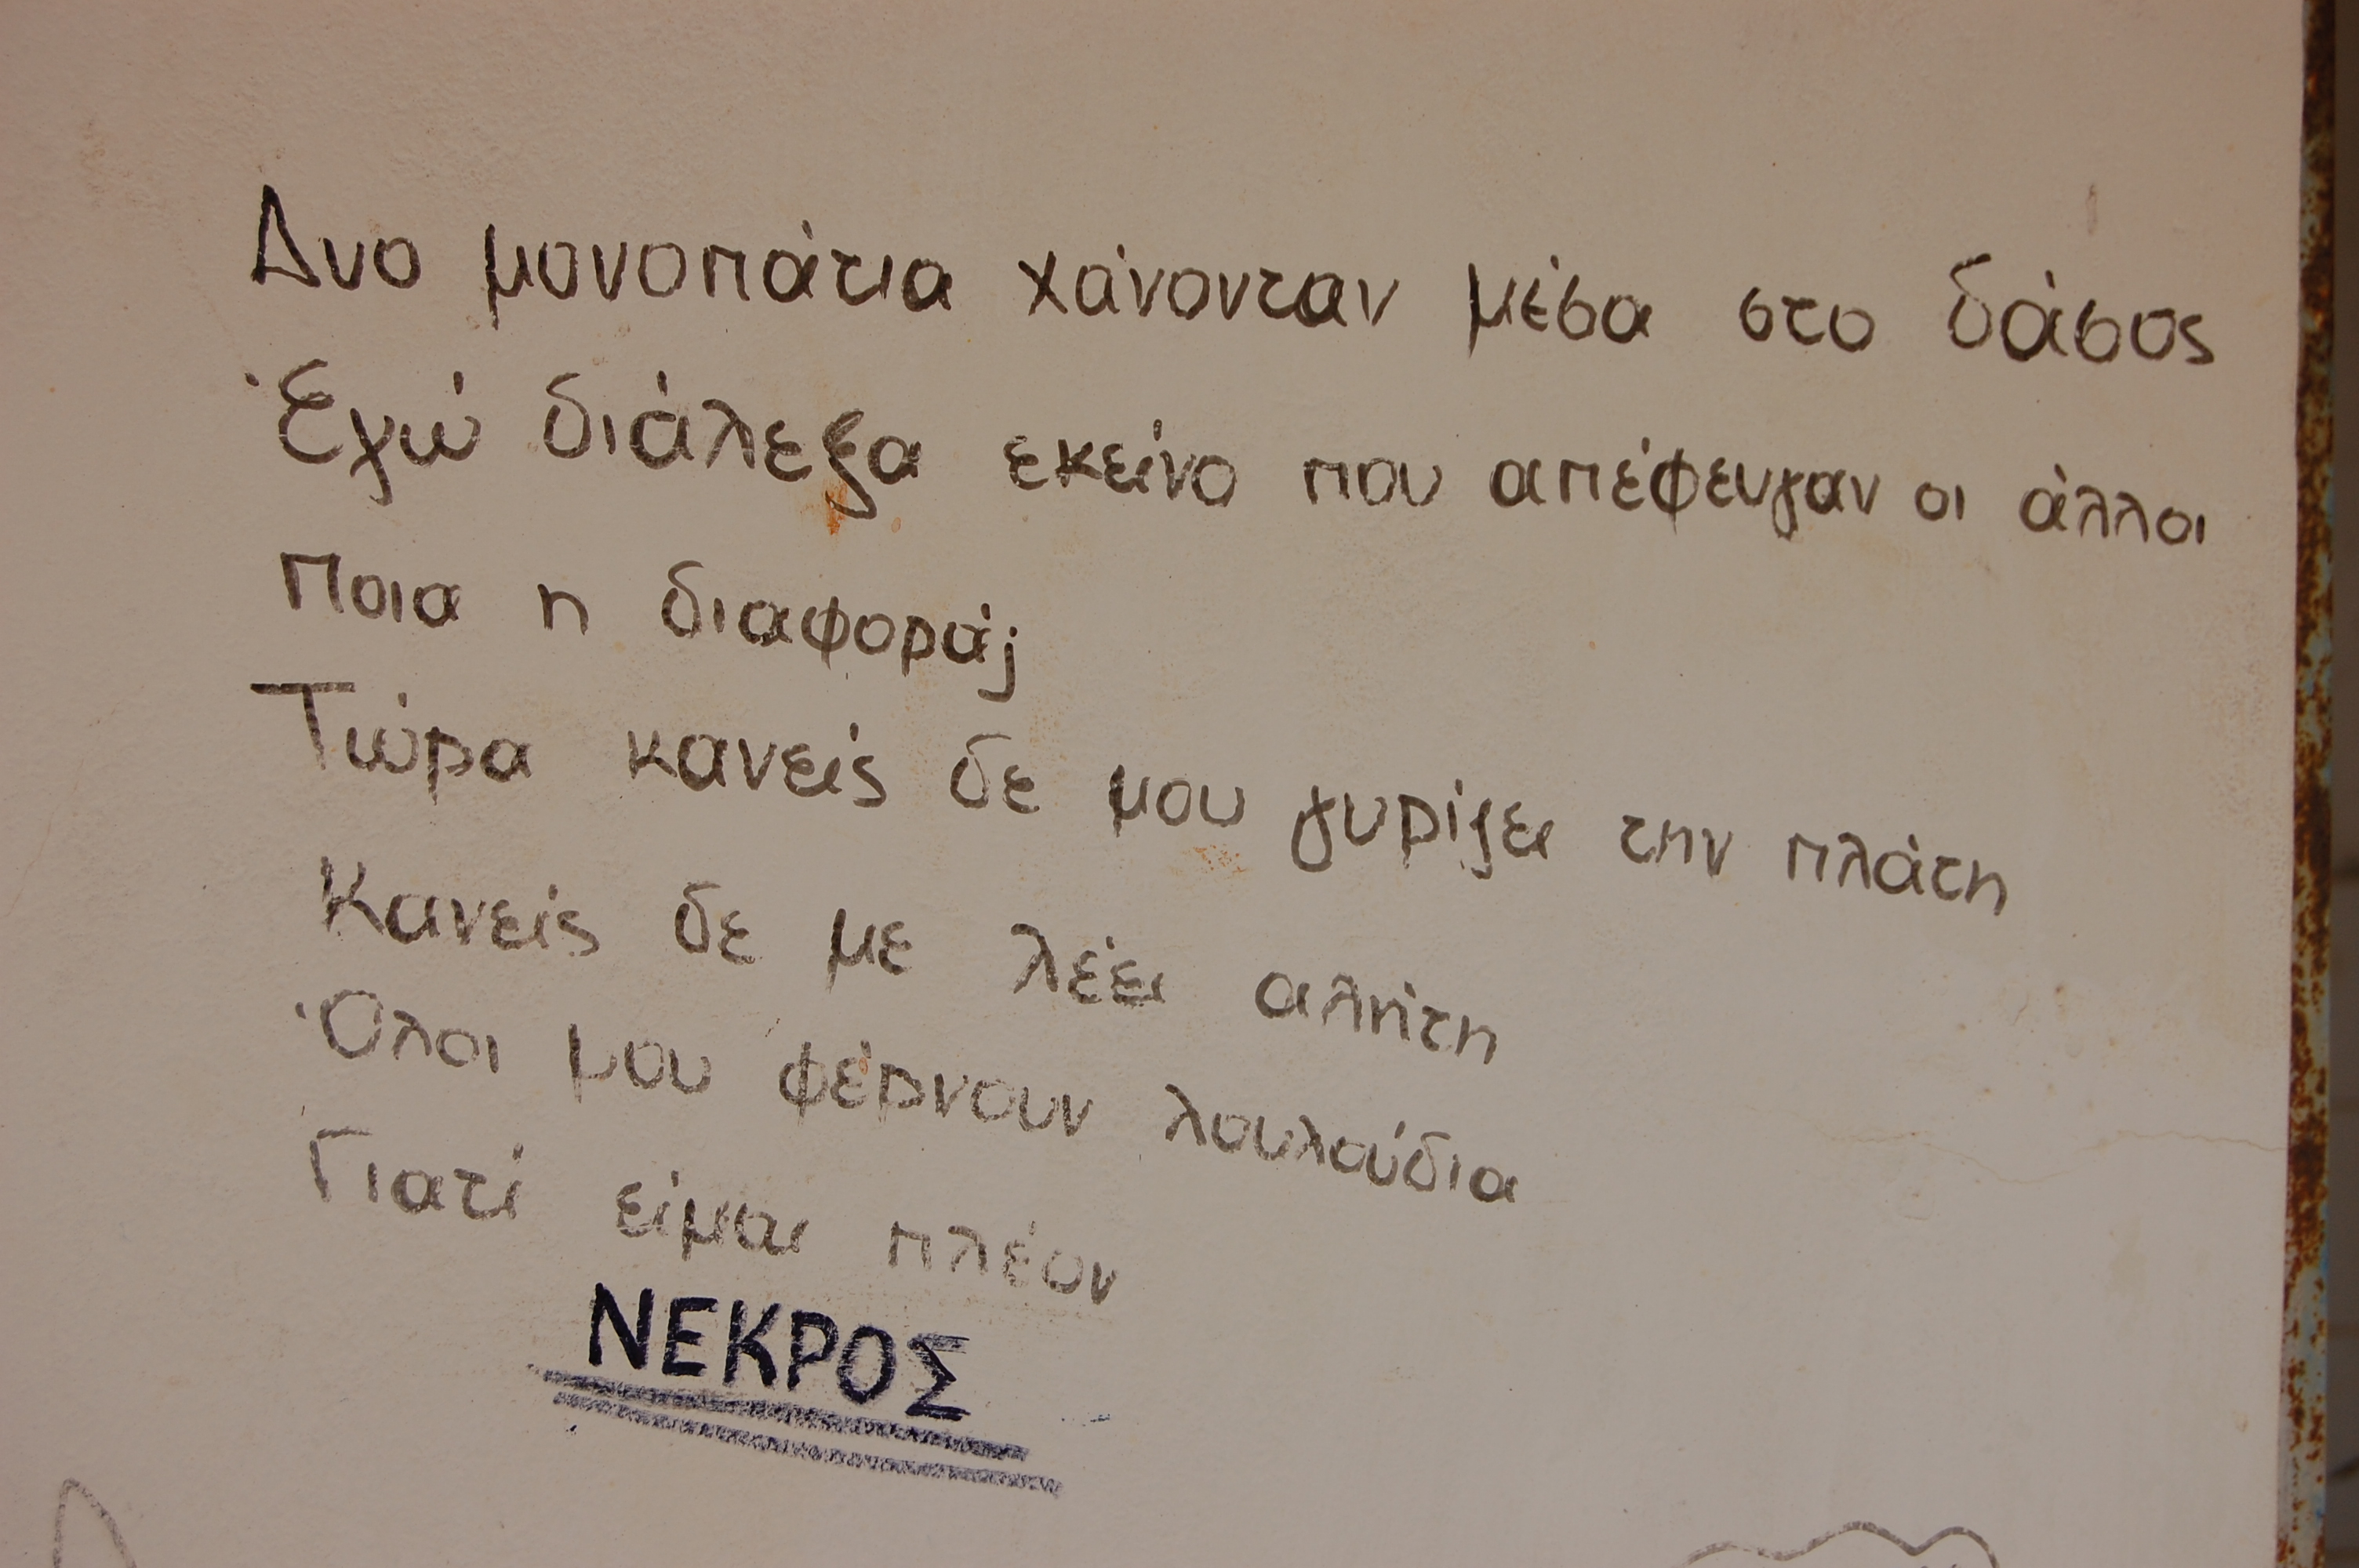 Δυο μονοπάτια χάνονταν μέσα στο δάσος
Έγώ διάλεξα εκείνο που απέφευγαν οι άλλοι
Ποια η διαφορά;
Τώρα κανείς δε μου γυρίζει την πλάτη
Κανείς δε με λέει αλήτη
Όλοι μου φέρνουν λουλούδια
Γιατί είμαι πλέον
ΝΕΚΡΟΣ